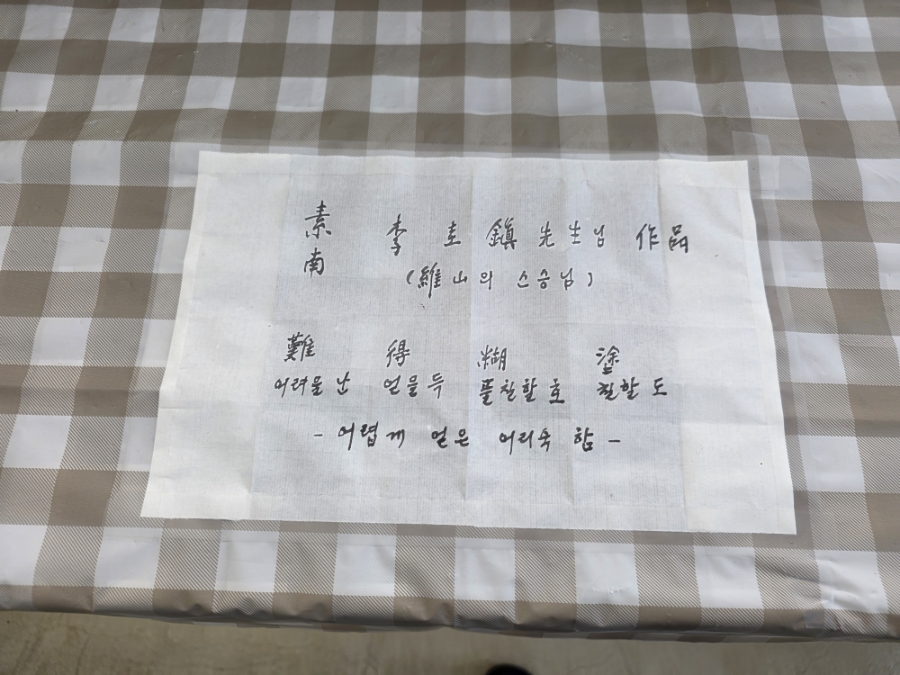 素南 李圭鎭先生님 作品
(維山의 스승님)
難 得 糊 塗
어려울 난 얻을 득 풀칠할 호 칠할 도
- 어렵게 얻은 어리숙 함 -